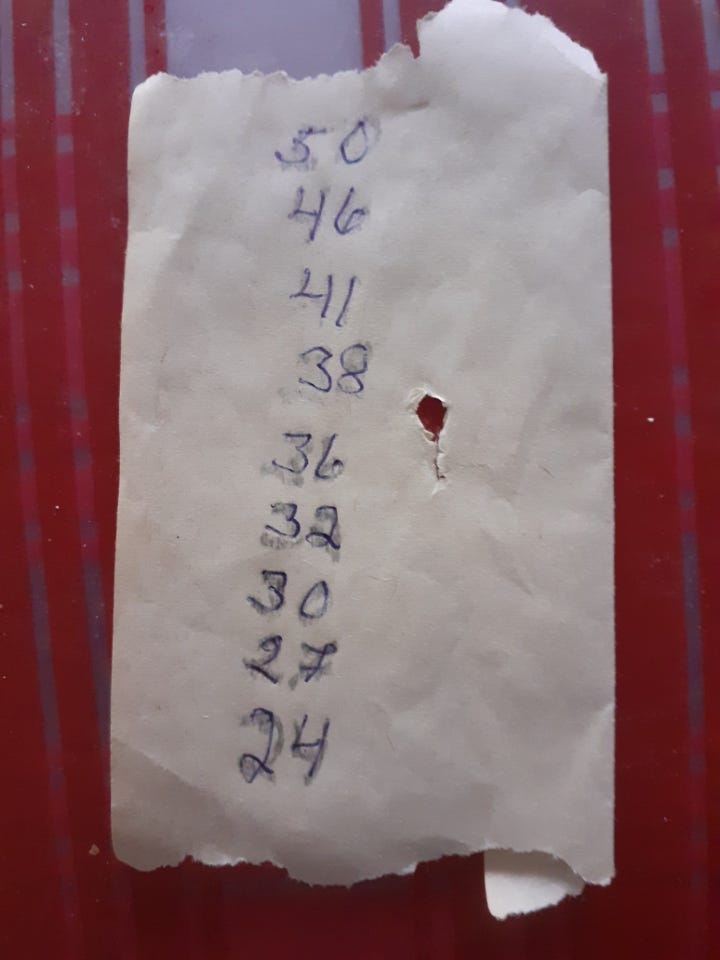 50
46
41
38
36
32
30
27
24